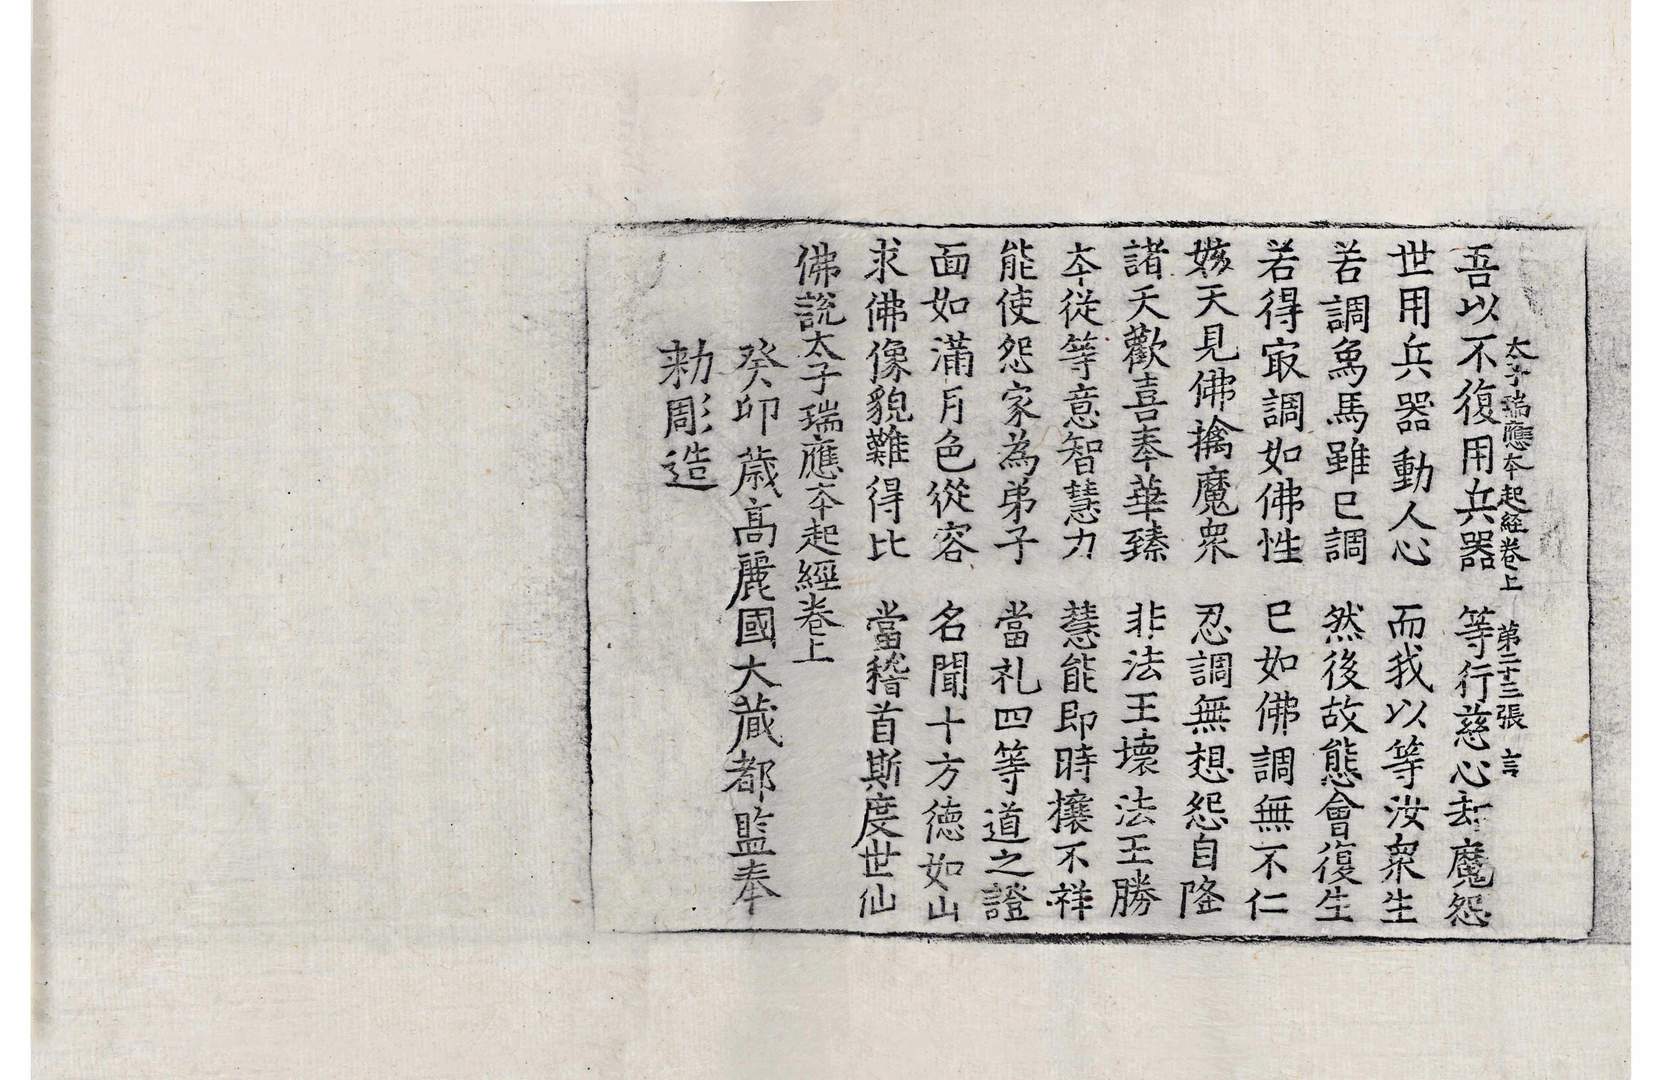 太子瑞應夲起経卷上 第二十三張 言
吾以不復用兵器 等行慈心却魔怨
世用兵器動人心 而我以等汝衆生
若調象馬雖已調 然後故態會復生
若得㝡調如佛性 已如佛調無不仁
㛄天見佛擒魔衆 忍調無想怨自降
諸天歡喜奉華臻 非法王壞法王勝
夲從等意智慧力 慧能即時攘不祥
能使怨家為弟子 當礼四等道之證
面如滿月色從容 名聞十方德如山
求佛像貌難得比 當稽首斯度世仙
佛說太子瑞應夲起經卷上
癸卯歲高麗國大藏都監奉
勑彫造